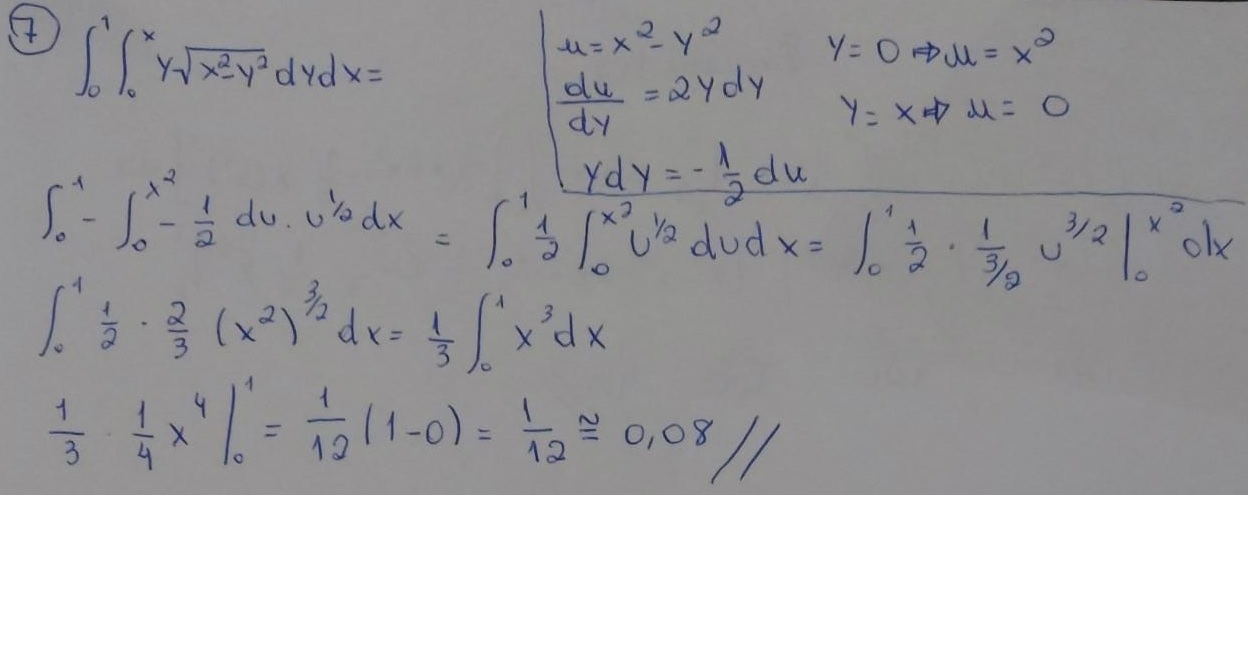 7 ∫₀¹ ∫₀ˣ y√(x²-y²) dy dx =
u = x² - y²
du/dy = 2y dy
y dy = -1/2 du
y = 0 ⇒ u = x²
y = x ⇒ u = 0
∫₀¹ - ∫₀^(x²) - 1/2 du . u^(1/2) dx = ∫₀¹ 1/2 ∫₀^(x²) u^(1/2) du dx = ∫₀¹ 1/2 · 1/(3/2) u^(3/2) |₀^(x²) dx
∫₀¹ 1/2 · 2/3 (x²)^(3/2) dx = 1/3 ∫₀¹ x³ dx
1/3 · 1/4 x⁴ |₀¹ = 1/12 (1-0) = 1/12 ≅ 0,08 //